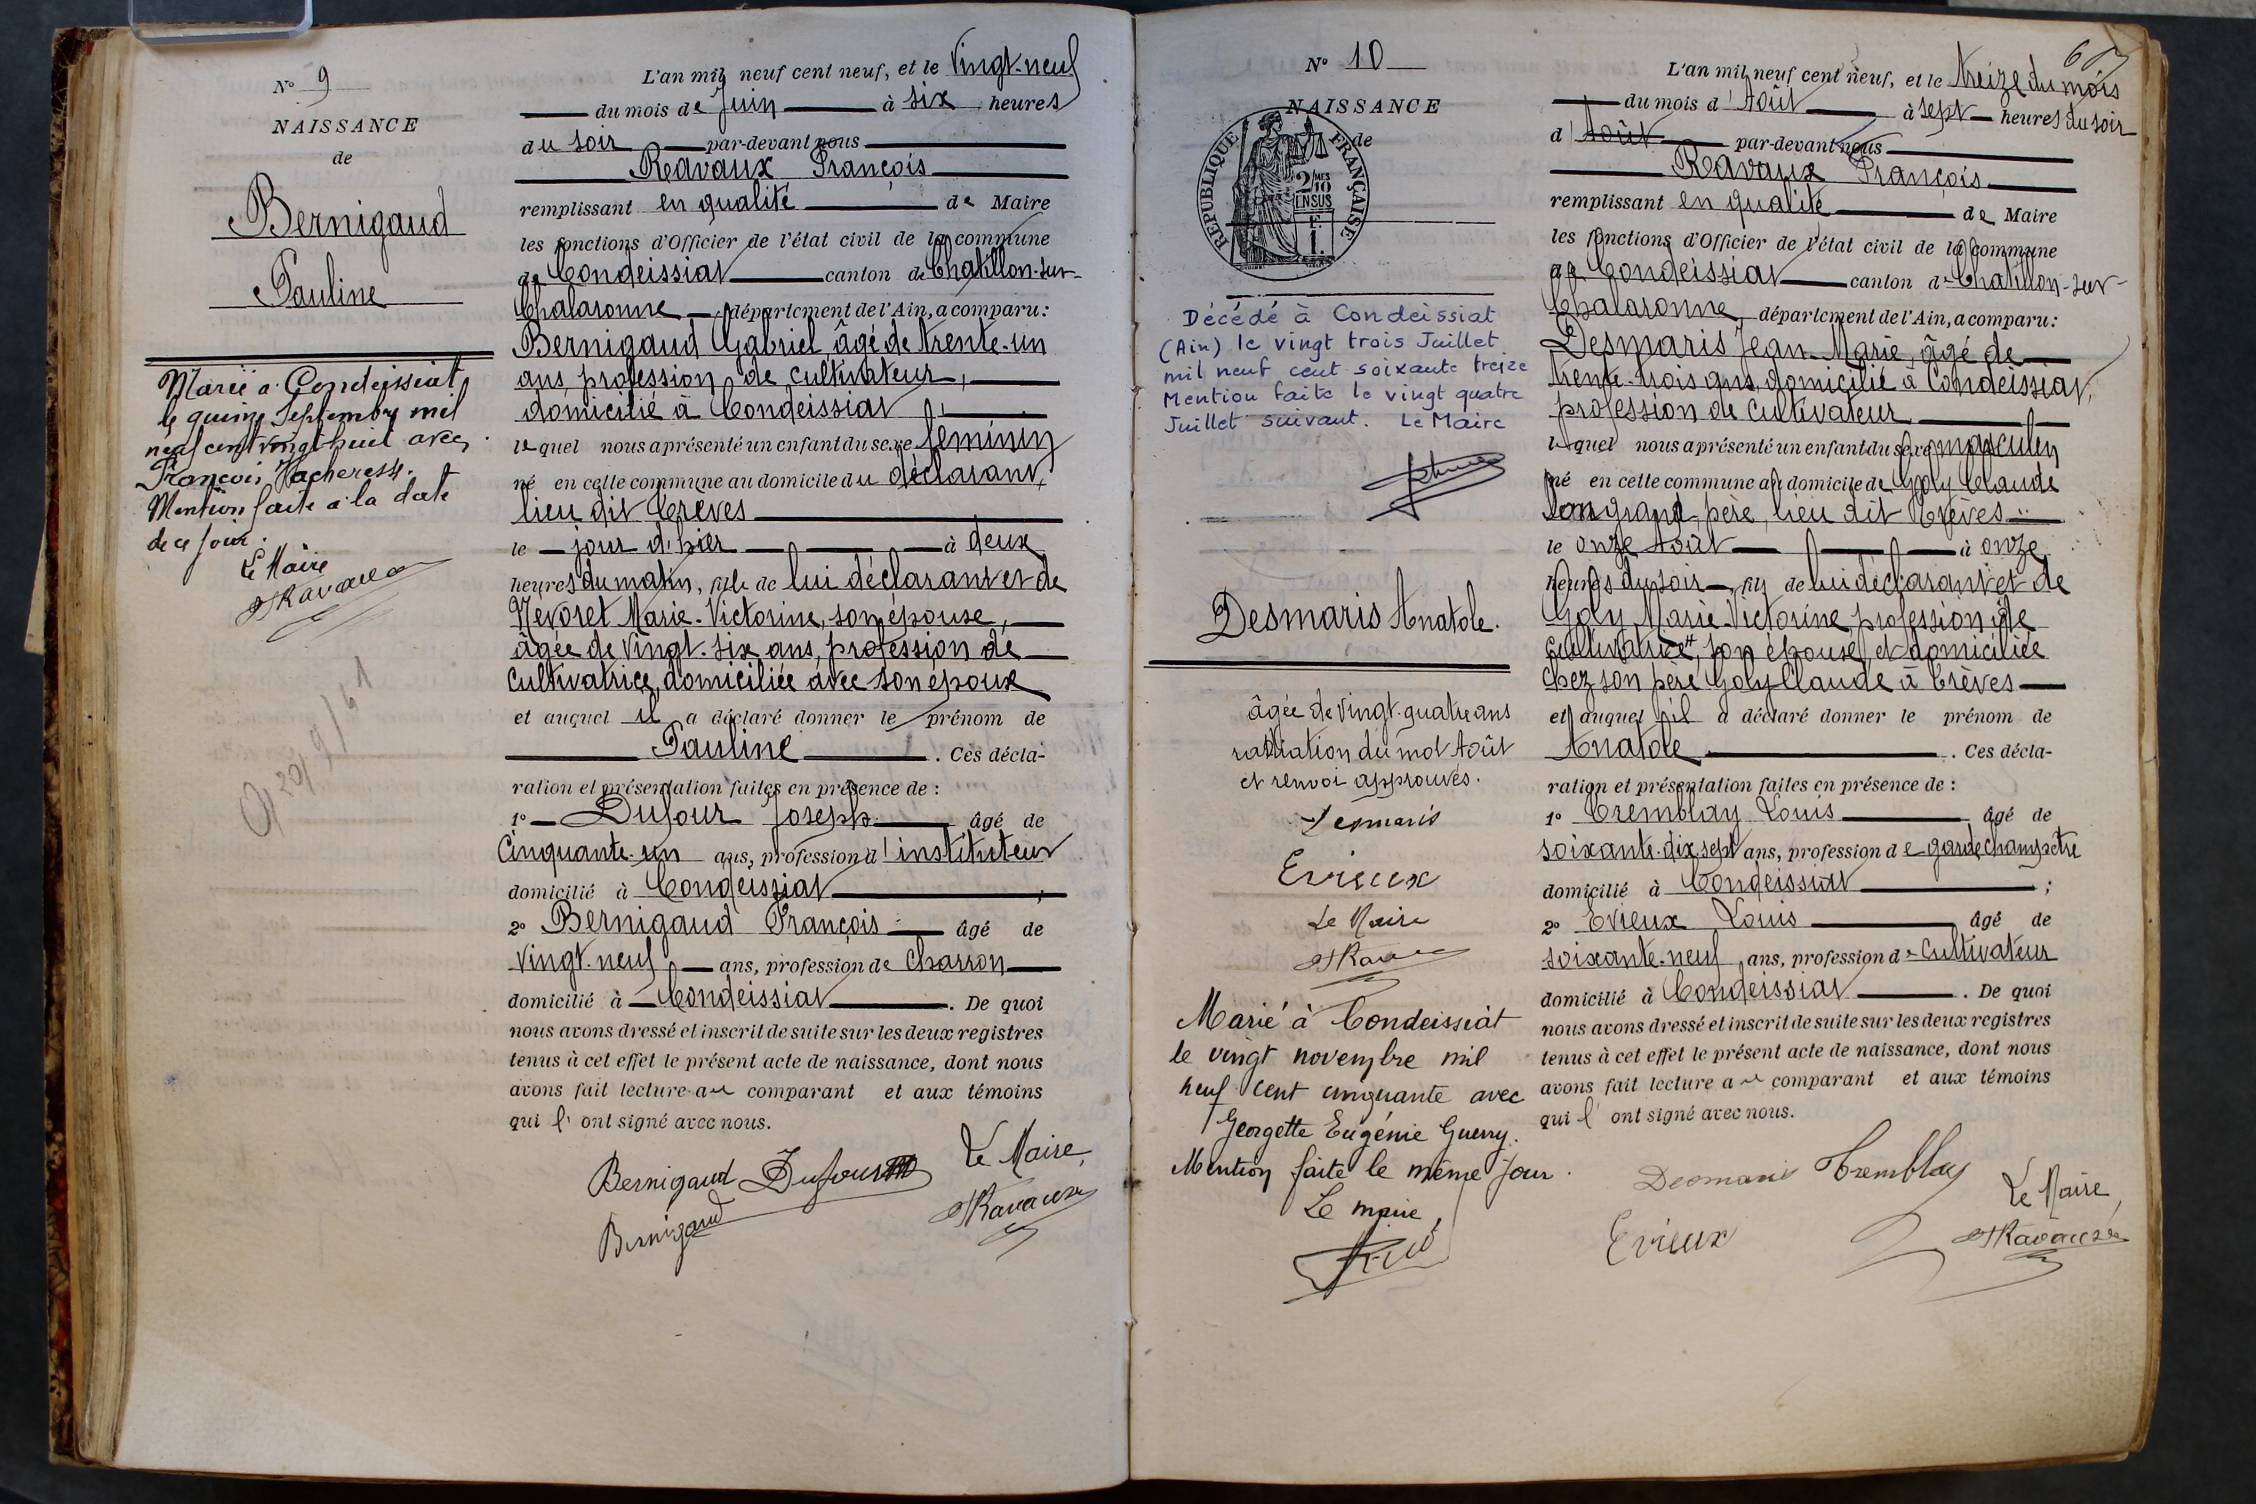 N° 9
NAISSANCE
de
Bernigaud
Pauline
Marié à Condeissiat
le quinze Septembre mil
neuf cent vingt huit avec
François Vacheresse.
Mention faite à la date
de ce jour.
Le Maire
Ravaux
L'an mil neuf cent neuf, et le Vingt-neuf
du mois de Juin à six heures
du soir par-devant nous
Ravaux François
remplissant en qualité de Maire
les fonctions d'Officier de l'état civil de la commune
de Condeissiat canton de Chatillon-sur-
Chalaronne, département de l'Ain, a comparu:
Bernigaud Gabriel âgé de trente-un
ans, profession de cultivateur,
domicilié à Condeissiat
lequel nous a présenté un enfant du sexe féminin
né en cette commune au domicile du déclarant,
lieu dit Crèves
le jour d'hier à deux
heures du matin, fille de lui déclarant et de
Nevoret Marie-Victorine, son épouse,
âgée de vingt-six ans, profession de
cultivatrice, domiciliée avec son époux
et auquel il a déclaré donner le prénom de
Pauline. Ces décla-
ration et présentation faites en présence de :
1° Dufour Joseph âgé de
Cinquante-un ans, profession d'instituteur
domicilié à Condeissiat ;
2° Bernigaud François âgé de
Vingt-neuf ans, profession de charron
domicilié à Condeissiat. De quoi
nous avons dressé et inscrit de suite sur les deux registres
tenus à cet effet le présent acte de naissance, dont nous
avons fait lecture au comparant et aux témoins
qui l'ont signé avec nous.
Bernigaud Dufour Le Maire,
Bernigaud Ravaux
N° 10
NAISSANCE
de
REPUBLIQUE FRANÇAISE
2/10 MES
EN SUS
F.
1.
Décédé à Condeissiat
(Ain) le vingt trois Juillet
mil neuf cent soixante treize
Mention faite le vingt quatre
Juillet suivant. Le Maire
Desmaris Anatole.
âgée de vingt-quatre ans
radiation du mot Août
et renvoi approuvés.
Desmaris
Evieux
Le Maire
Ravaux
Marié à Condeissiat
le vingt novembre mil
neuf cent cinquante avec
Georgette Eugénie Guerry.
Mention faite le même jour.
Le maire,
L'an mil neuf cent neuf, et le treize du mois
du mois d'Août à sept heures du soir
d'Août par-devant nous
Ravaux François
remplissant en qualité de Maire
les fonctions d'Officier de l'état civil de la commune
de Condeissiat canton de Chatillon-sur-
Chalaronne, département de l'Ain, a comparu:
Desmaris Jean-Marie, âgé de
trente-trois ans, domicilié à Condeissiat,
profession de cultivateur
lequel nous a présenté un enfant du sexe masculin
né en cette commune au domicile de Goly Claude
son grand père, lieu dit Crèves
le onze Août à onze
heures du soir, fils de lui déclarant et de
Goly Marie-Victorine profession de
cultivatrice, son épouse, et domiciliée
chez son père Goly Claude à Crèves
et auquel il a déclaré donner le prénom de
Anatole. Ces décla-
ration et présentation faites en présence de :
1° Tremblay Louis âgé de
soixante-dix sept ans, profession de garde champêtre
domicilié à Condeissiat ;
2° Evieux Louis âgé de
soixante-neuf ans, profession de cultivateur
domicilié à Condeissiat. De quoi
nous avons dressé et inscrit de suite sur les deux registres
tenus à cet effet le présent acte de naissance, dont nous
avons fait lecture au comparant et aux témoins
qui l'ont signé avec nous.
Desmaris Tremblay Le Maire,
Evieux Ravaux